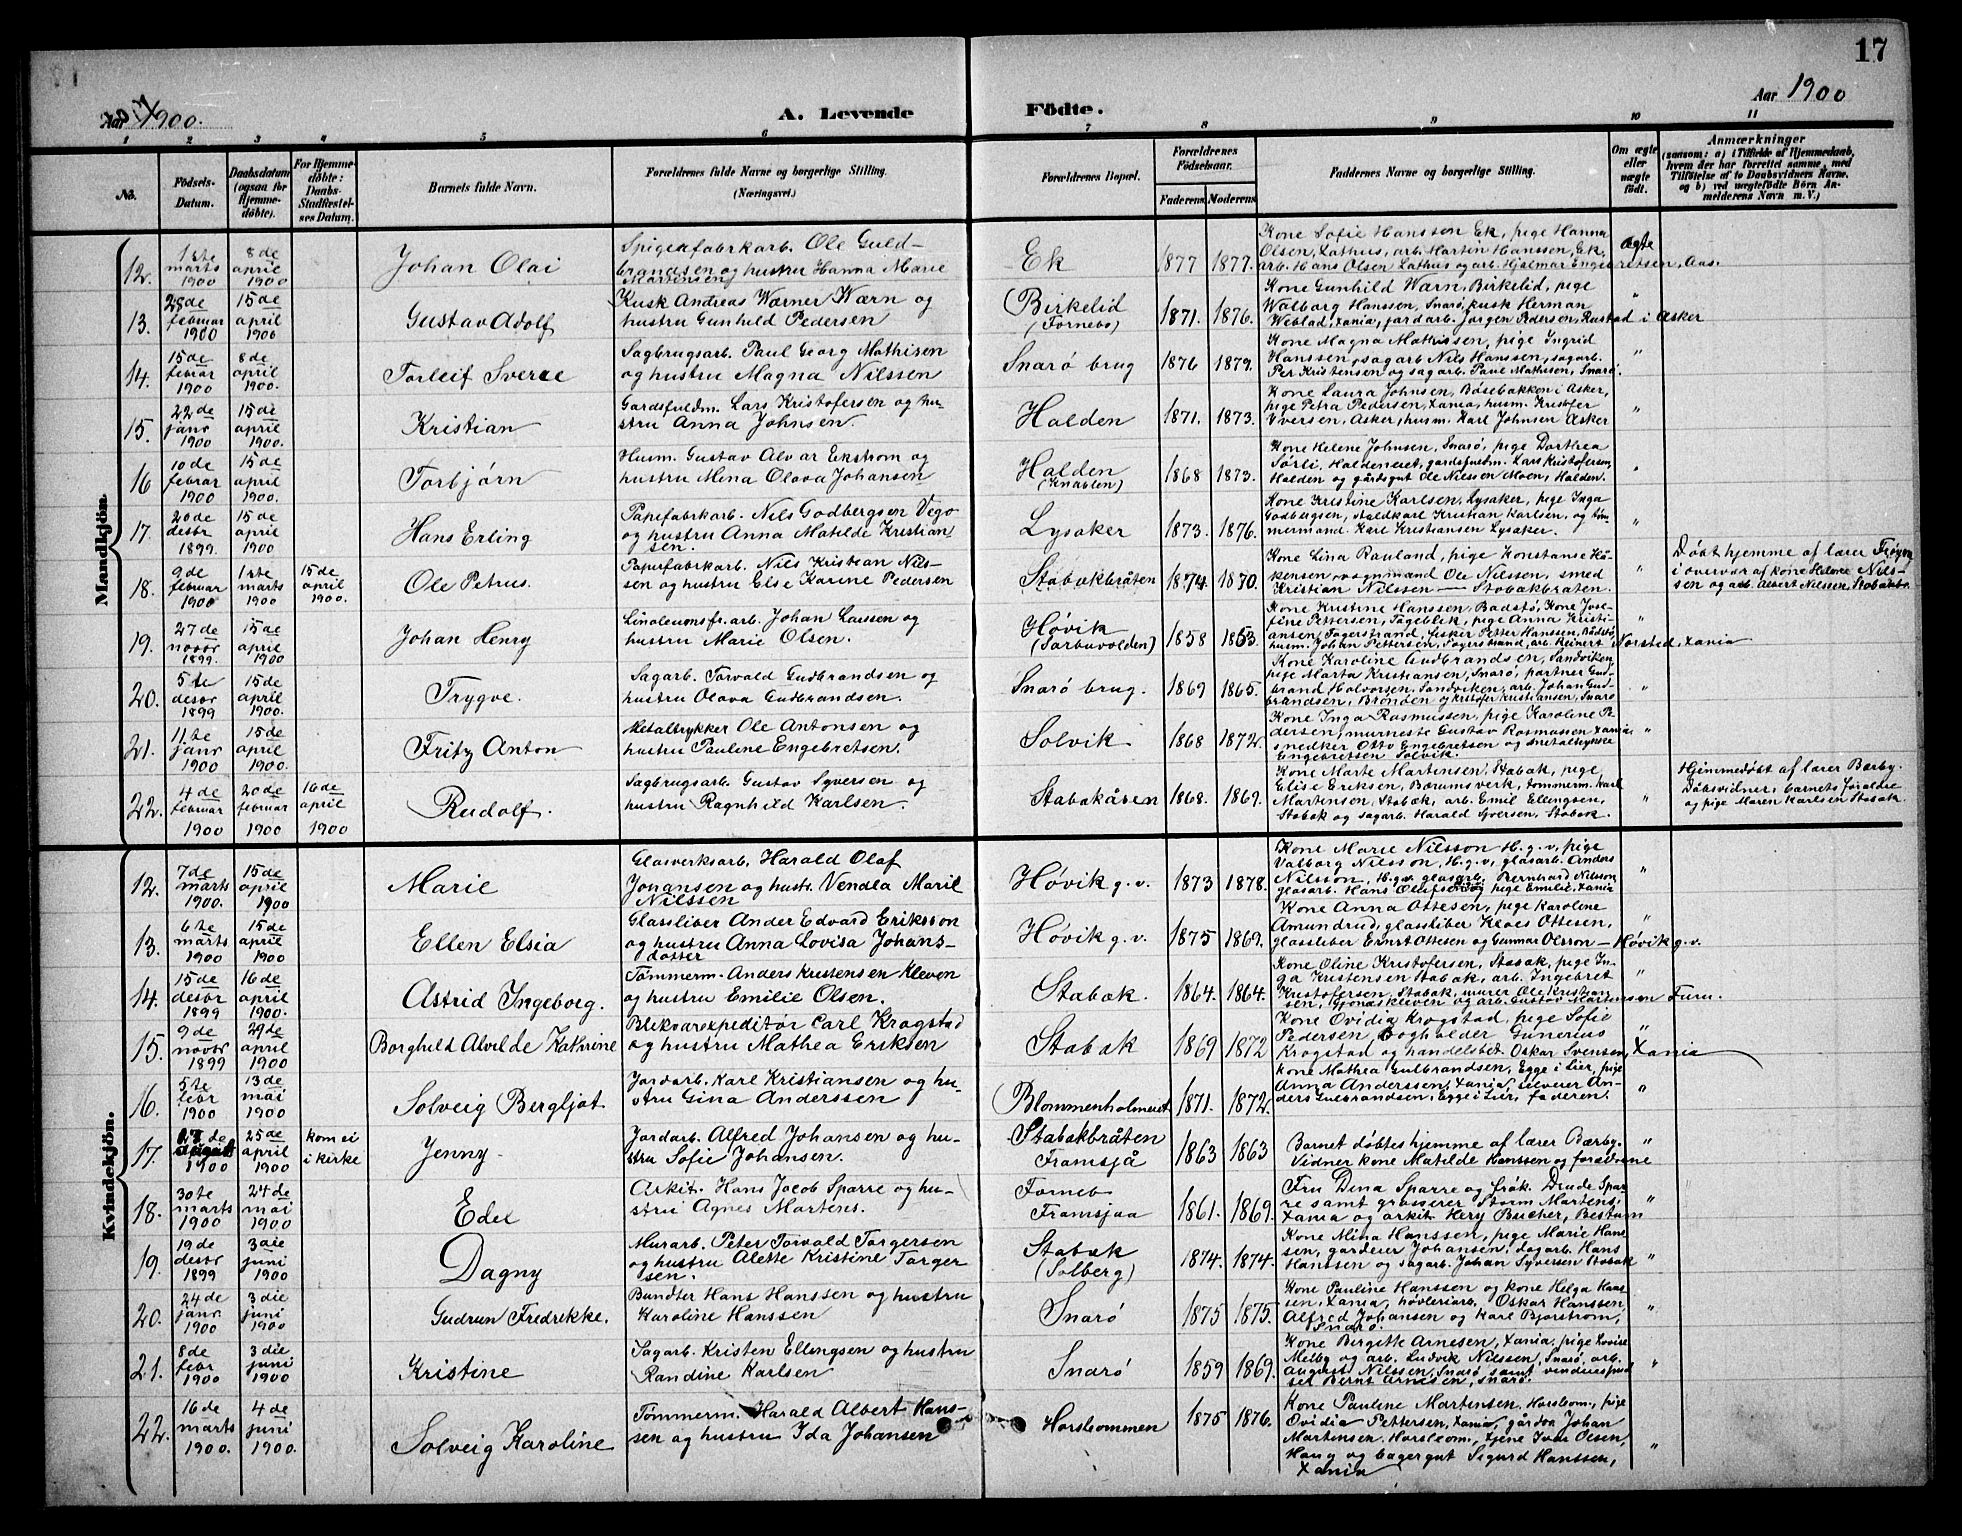 17
Aar 1900.
A. Levende
Födte.
Aar 1900
1 2 3 4 5 6 7 8 9 10 11
No.
Födsels-Datum.
Daabsdatum (ogsaa for Hjemmedöbte).
For Hjemmedöbte: Daabs-Stadfæstelses Datum.
Barnets fulde Navn.
Forældrenes fulde Navne og borgerlige Stilling. (Næringsvei.)
Forældrenes Bopæl.
Forældrenes Födselsaar.
Faderens
Moderens
Faddernes Navne og borgerlige Stilling.
Om ægte eller uægte födt.
Anmærkninger
(saasom: a) i Tilfælde af Hjemmedaab, hvem der har forrettet samme, med Tilföielse af to Daabsvidners Navne. og b) ved uægtefödte Börn Anmelderens Navn m. V.)
Mandkjön.
12. 1ste marts 1900 8de april 1900 Johan Olai
Spigerfabrkarb. Ole Guld-
brandsen og hustru Hanna Marie
Martinsen
Ek 1877 1877.
Kone Sofie Hanssen Ek, pige Hanna
Olsen, Lathus, arb. Martin Hanssen, Ek,
arb. Hans Olsen Lathus og arb. Hjalmar Engebretsen, Aas.
Ægte
13. 28de februar 1900 15de april 1900 Gustav Adolf
Kusk Andreas Wærner Wærn og
hustru Gunhild Pedersen
Birkelid (Fornebo) 1871. 1876.
Kone Gunhild Wærn, Birkelid, pige
Walborg Hanssen, Snarö, kusk Herman
Weblad, Xania, jardarb. Jørgen Pedersen, Rustad i Asker
"
14. 15de februar 1900 8de april 1900. Torleif Sverre
Sagbrugsarb. Paul Georg Mathisen
og hustru Magna Nilssen
Snarö brug 1876 1879.
Kone Magna Mathissen, pige Ingrid
Hanssen, sagarb. Nils Hanssen, sagarb.
Per Kristensen og sagarb. Paul Mathisen, Snarö.
"
15. 22de janr 1900 15de april 1900. Kristian
Gardsfuldm. Lars Kristofersen og hu-
stru Anna Johnsen.
Halden 1871. 1873.
Kone Laura Johnsen, Bösebakken i Asker,
pige Petra Pedersen, Xania, husm. Kristofer
Iversen, Asker, husm. Karl Johnsen Asker
"
16 10de februar 1900 15de april 1900 Torbjørn
Husm. Gustav Alvar Ekstrom og
hustru Mina Olava Johansen
Halden (Knablen) 1868 1873.
Kone Helene Johnsen, Snarö, pige Dorthea
Sørli, Haldeneset, gardsfuldm. Lars Kristofersen,
Halden og gårdsgut Ole Nilssen Moen, Halden.
"
17. 20de desbr 1899. 15de april 1900 Hans Erling
Papirfabrkarb. Nils Godbergsen Vego
og hustru Anna Matilde Kristian-
sen.
Lysaker 1873. 1876.
Kone Kristine Karlsen, Lysaker, pige Inga
Godbergsen, staldkarl Kristian Karlsen, og töm-
mermand. Karl Kristiansen Lysaker.
"
18. 9de februar 1900 1ste marts 1900 15de april 1900. Ole Petrus.
Papirfabrkarb. Nils Kristian Nils-
sen og hustru Else Karine Pedersen
Stabækbråten 1874. 1870.
Kone Lina Rauland, pige Konstanse Hå-
kensen, vognmand Ole Nilssen, smed
Kristian Nilssen — Stabækbråten.
"
Døbt hjemme af lærer
i overvær af kone Helene Nils-
sen og arb. Albert Nilssen, Stabækbr.
19. 27de novbr 1899. 15de april 1900 Johan Henry
Linoleumsfr. arb. Johan Larssen og
hustru Marie Olsen.
Høvik (Sarbuvolden) 1858 1853.
Kone Kristine Hanssen, Badstö, Kone Jose-
fine Pettersen, Tageblik, pige Anna Kristi-
ansen, Fagerstrand, fisker Petter Hanssen, Badstö,
husm. Johan Pettersen, Fagerstrand, arb. Reinert Norsted, Xania
20. 5te desbr 1899 15de april 1900. Trygve.
Sagarb. Torvald Gudbrandsen og
hustru Olava Gudbrandsen.
Snarö brug. 1869 1865.
Kone Karoline Gudbrandsen, Sandviken,
pige Marta Kristiansen, Snarö, partner Gud-
brand Halvorsen, Sandviken, arb. Johan Gud-
brandsen, Brönöen og Kristofer Kristiansen, Snarö
"
21. 11te janr 1900 15de april 1900. Fritz Anton
Metaltrykker Ole Antonsen og
hustru Pauline Engebretsen.
Solvik 1868 1872.
Kone Inga Rasmussen, pige Karoline Pe-
dersen, murmeste Gustav Rasmussen Xania
snedker Otto Engebretsen og
Engebretsen Solvik.
"
22. 4de februar 1900 20de februar 1900 16de april 1900 Rudolf.
Sagbrugsarb. Gustav Syversen og
hustru Ragnhild Karlsen.
Stabækåsen 1868. 1869.
Kone Marte Martinsen, Stabæk, pige
Elise Eriksen, Bærumsverk, tommerm. Karl
Martinsen, Stabæk, arb. Emil Ellengsen,
Stabæk og sagarb. Harald Syversen, Stabæk.
"
Hjemmedøbt af lærer Bærby.
Dåbsvidner, barnets foreldre
og pige Maren Karlsen Stabæk.
Kvindekjön.
12. 7de marts 1900. 15de april 1900 Marie
Glasverksarb. Harald Olaf
Johansen og hustr. Vendla Maril
Nilssen
Høvik g.v. 1873 1878.
Kone Marie Nilsson H.g.v, pige
Valborg Nilsson, H.g.v, glasarb. Anders
Nilsson, H.g.v. glasarb. Bernhard Nilson
glasarb. Hans Olafsen og pige Emilie, Xania
"
13. 6te marts 1900 15de april 1900 Ellen Elsia
Glassliber Ander Edvard Eriksson
og hustru Anna Lovisa Johans-
dotter
Høvik g.v. 1875 1869.
Kone Anna Ottesen, pige Karoline
Amundrud, glassliber Klaes Ottesen,
glassliber Ernst Ottesen og Gunnar Olsson — Høvik g.v.
"
14. 15de desbr 1899 16de april 1900. Astrid Ingeborg.
Tømmerm. Anders Kristensen Kleven
og hustru Emilie Olsen.
Stabæk. 1864. 1864.
Kone Oline Kristofersen, Stabæk, pige In-
ga Kristensen Stabæk, arb. Ingebret
Kristofersen, Stabæk, murer Ole Kristian
sen, Grönaskleven og arb. Gustav Martinsen Furu.
"
15. 9de novbr 1899 29de april 1900 Borghild Alvilde Kathrine
Blikvarexpeditör Carl Krogstad
og hustru Mathea Eriksen
Stabæk 1869 1872
Kone Ovidia Krogstad, pige Sofie
Pedersen bogholder Gunerius
Krogstad og handelsbet. Oskar Svensen, Xania
"
16. 5te febr 1900 13de mai 1900 Solveig Bergljot
Jordarb. Karl Kristiansen og hu-
stru Gina Anderssen
Blommenholmeiet 1871. 1872.
Kone Mathea Gulbrandsen, Egge i Lier, pige
Anna Anderssen, Xania, selveier An-
ders Gulbrandsen, Egge i Lier, faderen.
"
17. 17de 1900 25de april 1900 kom ei i kirke Jenny.
Jordarb. Alfred Johansen og hu-
stru Sofie Johansen.
Stabækbråten Framsjå 1863 1863
Barnet døbtes hjemme af lærer Bærby.
Vidner kone Matilde Hanssen og forældrene
"
18. 30te marts 1900 24de mai 1900 Edel
Arkit. Hans Jacob Sparre og hu-
stru Agnes Martens.
Forneb Framsjaa 1861. 1869.
Fru Dina Sparre og frøk. Drude Spar-
re samt grosserer Storm Martens,
Xania og arkit. Hery Bucher, Bestum
"
19. 19de desbr 1899 3die juni 1900 Dagny
Murarb. Peter Torvald Torgersen
og hustru Alette Kristine Torger
sen.
Stabæk (Solberg) 1874. 1874.
Kone Mina Hanssen, pige Marie Hans
sen, gardeier Johansen, dagarb. Hans
Hanssen og sagarb. Johan Syversen Stabæk
"
20. 24de janr 1900 3die juni 1900 Gudrun Fredrikke.
Bundter Hans Hanssen og hustru
Karoline Hanssen
Snarö 1875 1875.
Kone Pauline Hanssen og kone Helga Haas
sen, Xania, høvleriarb. Oskar Hanssen,
Alfred Johansen og Karl Bjorstrom,
Snarö.
"
21. 8de febr 1900 3die juni 1900 Kristine
Sagarb. Kristen Ellingsen og hustru
Randine Karlsen
Snarö 1859 1869.
Kone Birgitte Arnesen, Xania, pige Lovise
Melby og arb. Ludvik Nilssen, Snarö, arb.
August Nilssen, Snarö samt vinduespud
ser Bernt Arnesen, Snarö.
"
22. 16de marts 1900. 4de juni 1900. Solveig Karoline
Tømmerm. Harald Albert Hans-
sen og hustru Ida Johansen
Horslkommen 1875 1876.
Kone Pauline Martinsen, Horslkom, pige
Ovidia Pettersen, Xania, gårdbr Johan
Martinsen, Horslkom, tjene Ivar Olsen,
Haug og bagergut Sigurd Hanssen,
Xania
"